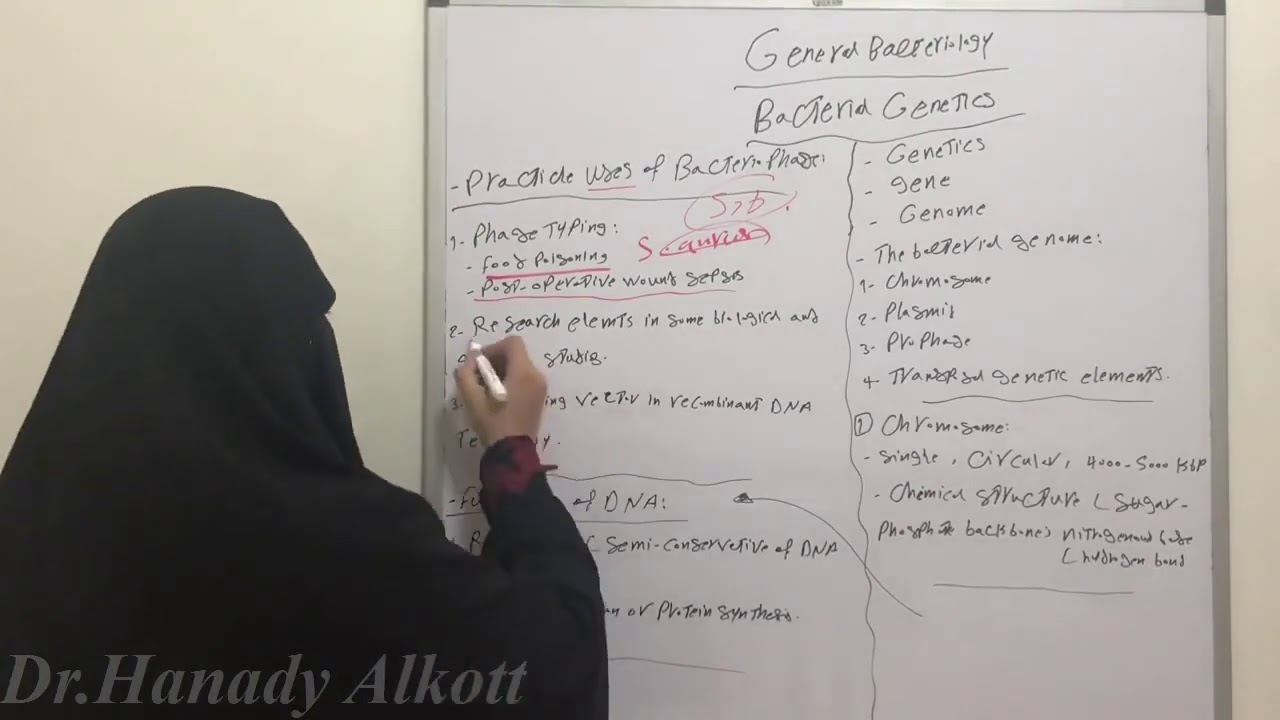 General Bacteriology
Bacterial Genetics
- Practicle Uses of Bacteriophage:
S. b
1- Phage Typing:
S aurius
- food Poisoning
- Post-operative wound sepsis
2- Research elemts in some biological and
studis.
3- ing vector in recombinant DNA
Te y.
of DNA:
( semi-conservative of DNA
on or Protein synthesis.
- Genetics
- gene
- Genome
- The bacterial genome:
1- Chromosome
2- Plasmid
3- Prophage
4- Transposal genetic elements.
① Chromosome:
- single, circular, 4000-5000 kbp
- Chemical structure ( sugar-
phosphate backbone) nitrogenous base
( hydrogen bond
Dr.Hanady Alkott